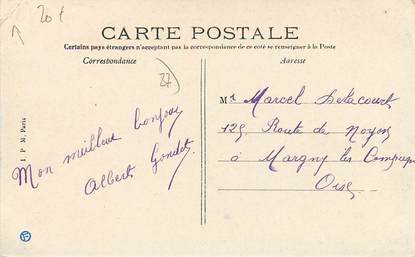 20 f
CARTE POSTALE
Certains pays étrangers n'acceptant pas la correspondance de ce coté se renseigner à la Poste
Correspondance
Adresse
37
I P M Paris
Mon meilleur bonjour
Albert
Mr Marcel Delacourt
125 Route de Noyon
à Margny les Compiegne
Oise